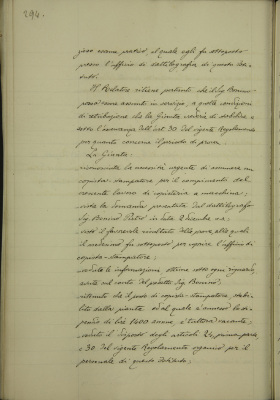 294.
esame pratico, al quale egli fu assoggettato
presso l'ufficio di dattilografia di questo Isti-
tuto.
Il Relatore ritiene pertanto che il Sig. Bonino
possa essere assunto in servizio, a quelle condizioni
di retribuzione che la Giunta vorrà stabilire e
sotto l'osservanza dell'art. 30 del vigente Regolamento
per quanto concerne il periodo di prova.
La Giunta:
riconosciuta la necessità urgente di
copista-stampatore per il compimento del
lavoro di copisteria a macchina;
vista la domanda presentata dal dattilografo
Sig. Bonino Pietro in data 2
visto il favorevole risultato della prova alla quale
il medesimo fu assoggettato, per coprire l'ufficio di
copista-stampatore;
vedute le informazioni ottime sotto ogni riguardo,
avute sul conto del predetto Sig. Bonino;
ritenuto che il posto di copista-stampatore, stabi-
lito dalla pianta ed al quale è annesso lo sti-
pendio di lire 1400 annue, è tuttora vacante;
veduto il disposto degli articoli 24, prima parte,
e 30 del vigente Regolamento organico per il
personale di questo Istituto;